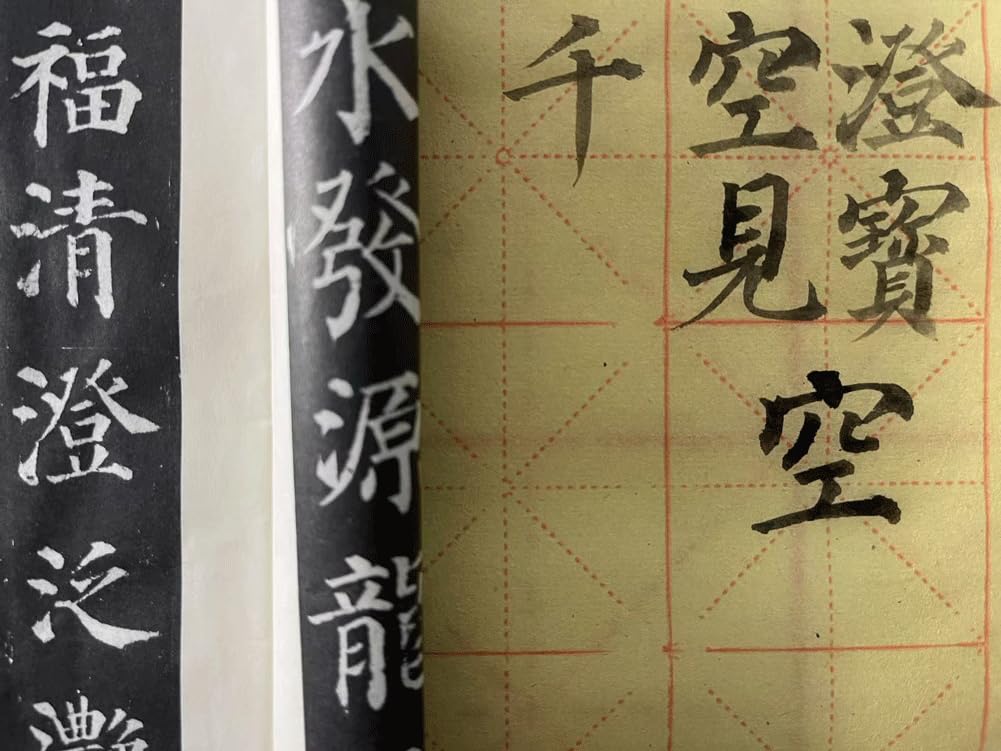 澄寶
空見
千
空
水發源龍
福清澄泛